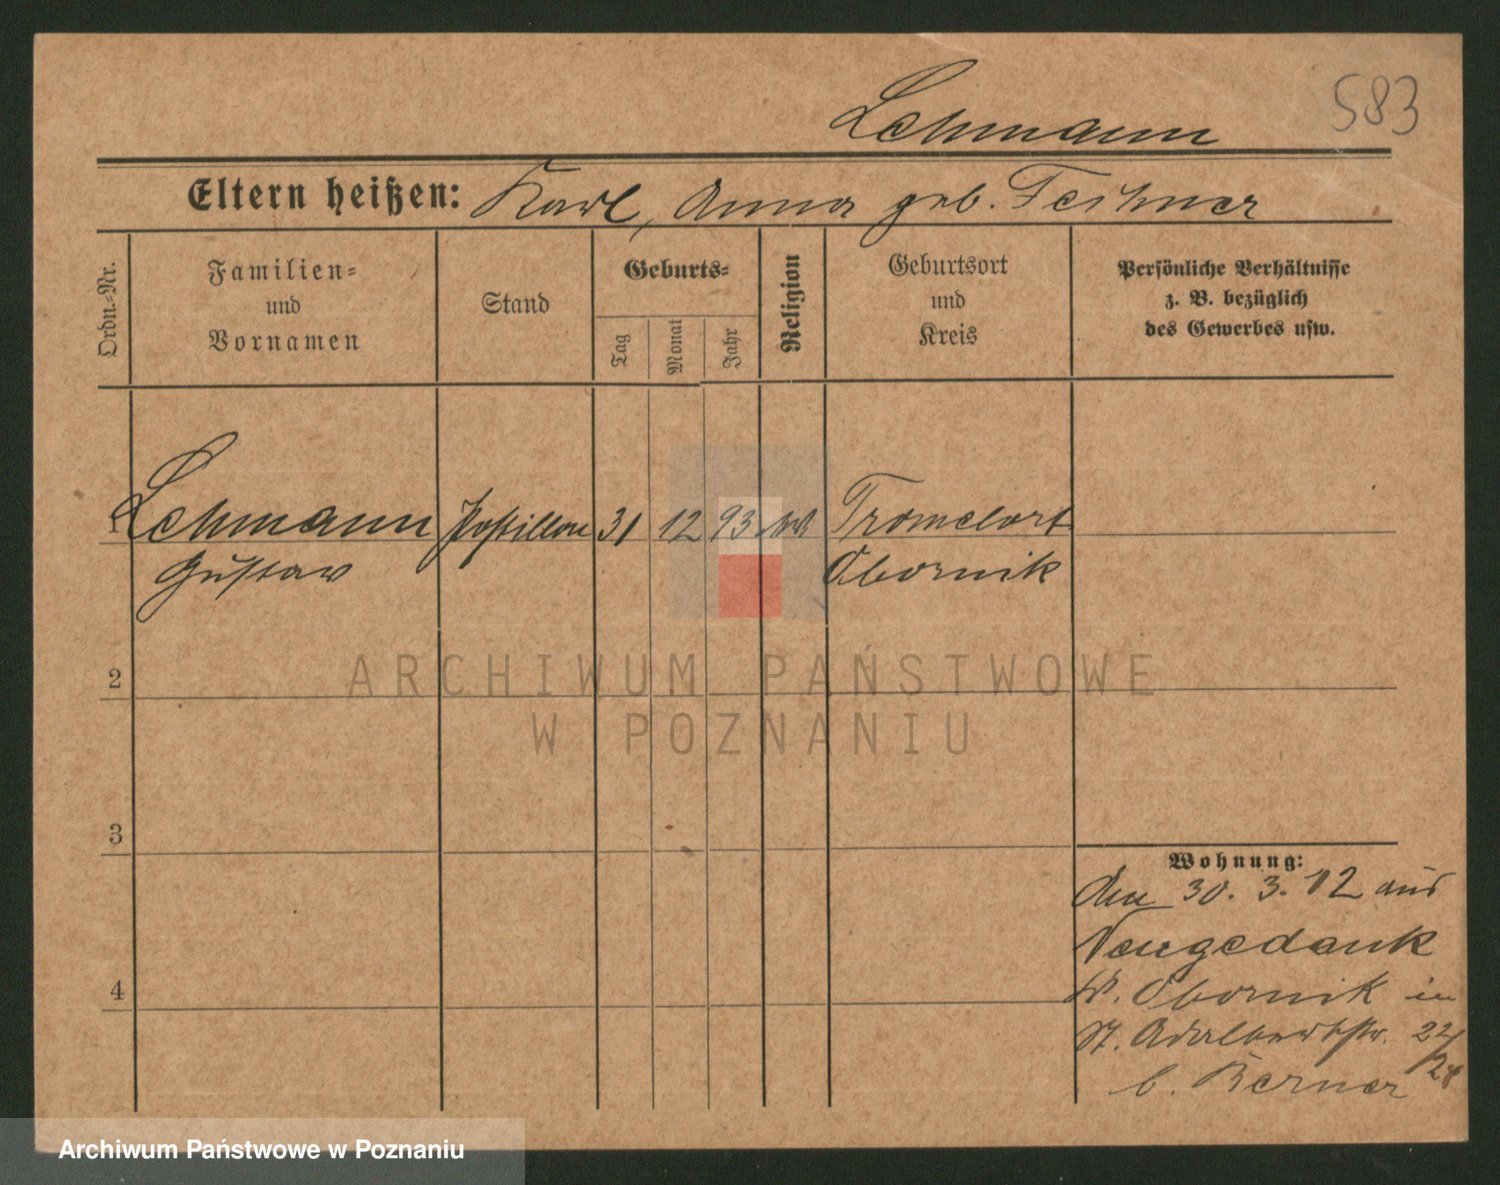 583
Lehmann
Eltern heißen: Karl, Anna geb.
Ordn.-Nr.
Familien-
und
Vornamen
Stand
Geburts-
Tag
Monat
Jahr
Religion
Geburtsort
und
Kreis
Persönliche Verhältnisse
z. B. bezüglich
des Gewerbes usw.
1 Lehmann Postillon 31 12 93
Gustav Obornik
2
3
4
Wohnung:
den 30. 3. 12 aus
Neugedank
Kr. Obornik in
St. Adalbertstr. 22/
28
b. Berner
ARCHIWUM PAŃSTWOWE
W POZNANIU
Archiwum Państwowe w Poznaniu